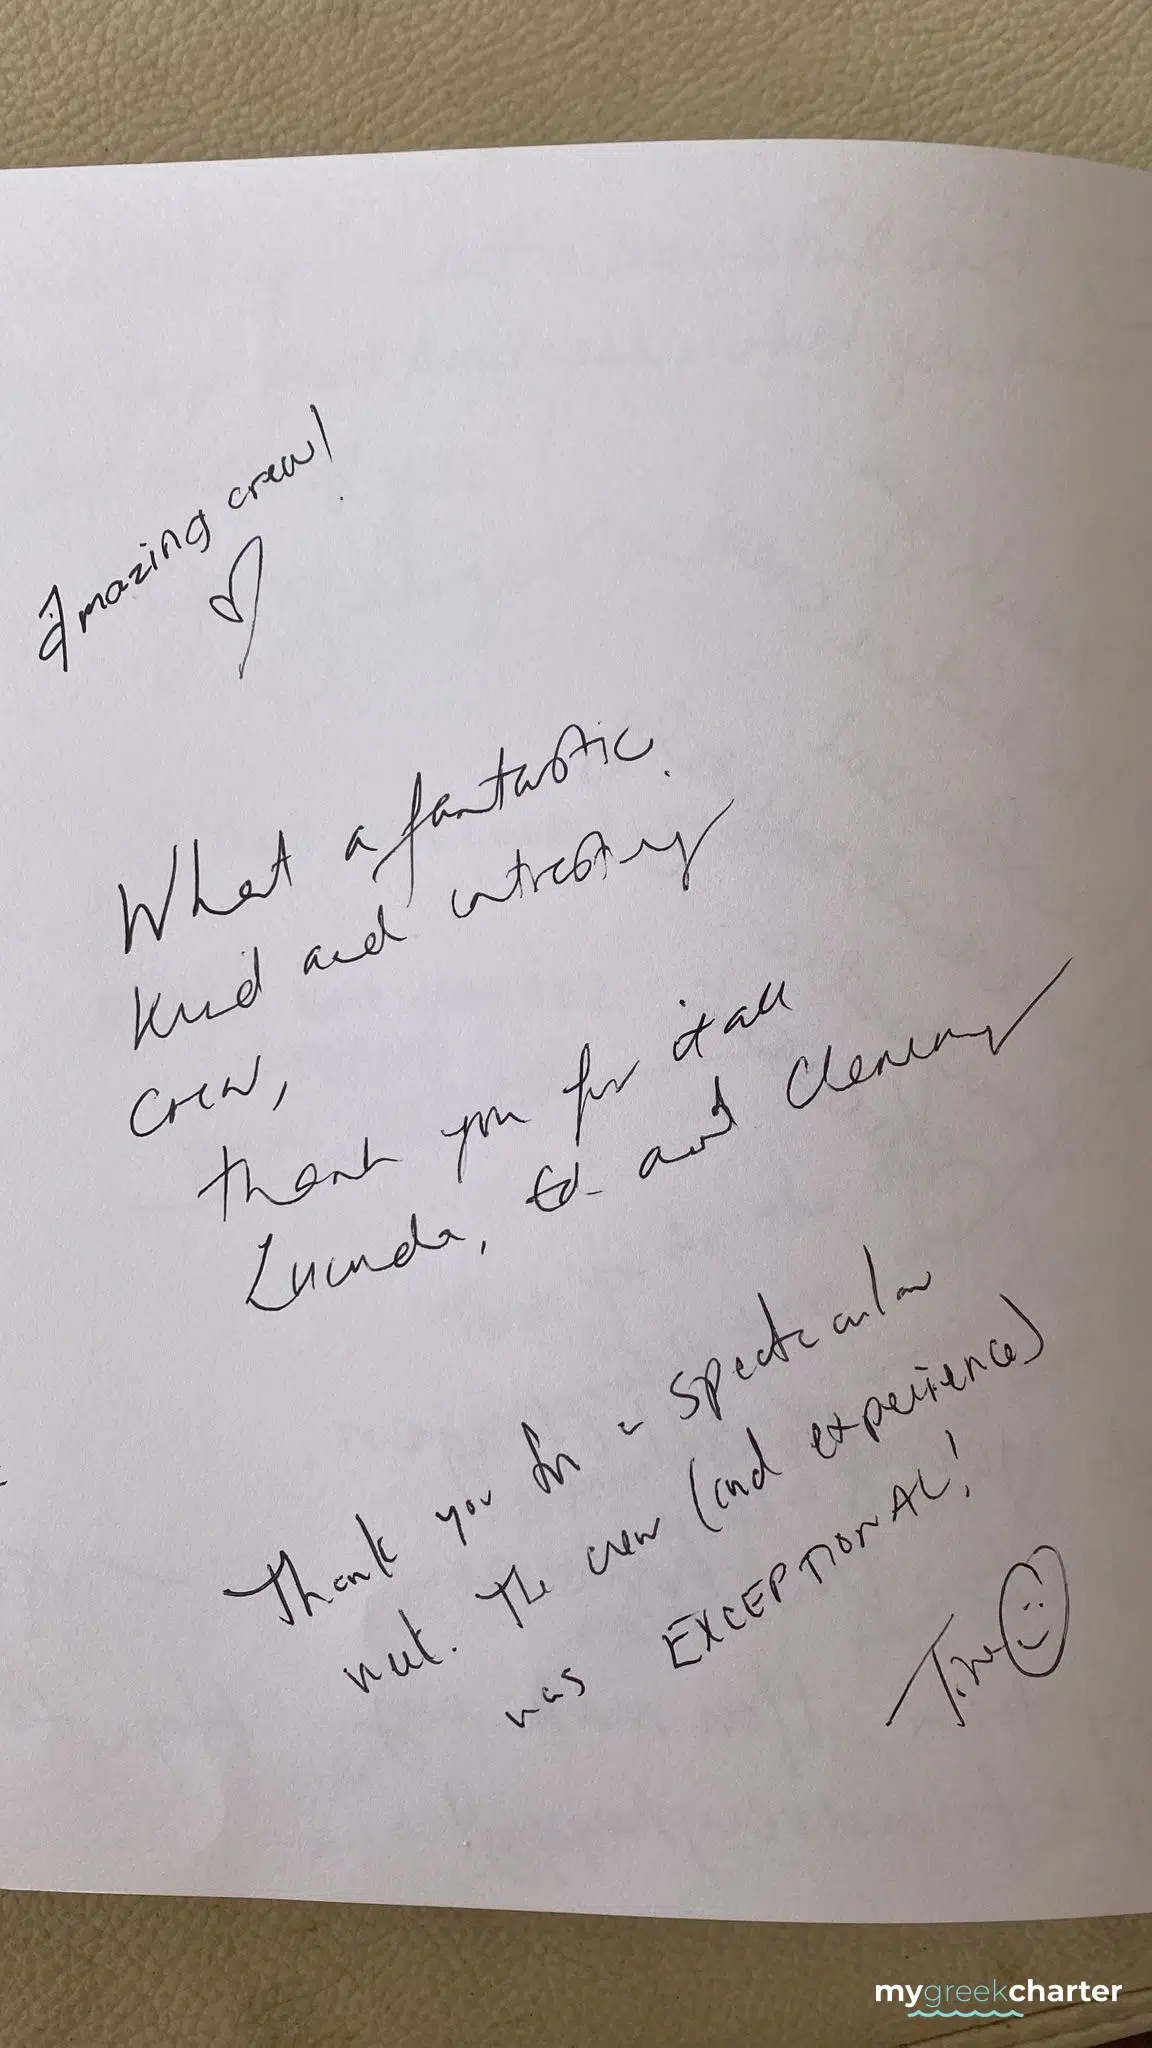 Amazing crew!
What a fantastic
Kind and intresting
crew,
thank you for it all
Lucinda, Ed and Clemency
Thank you for a spectacular
The crew (and experience)
was EXCEPTIONAL!
mygreekcharter